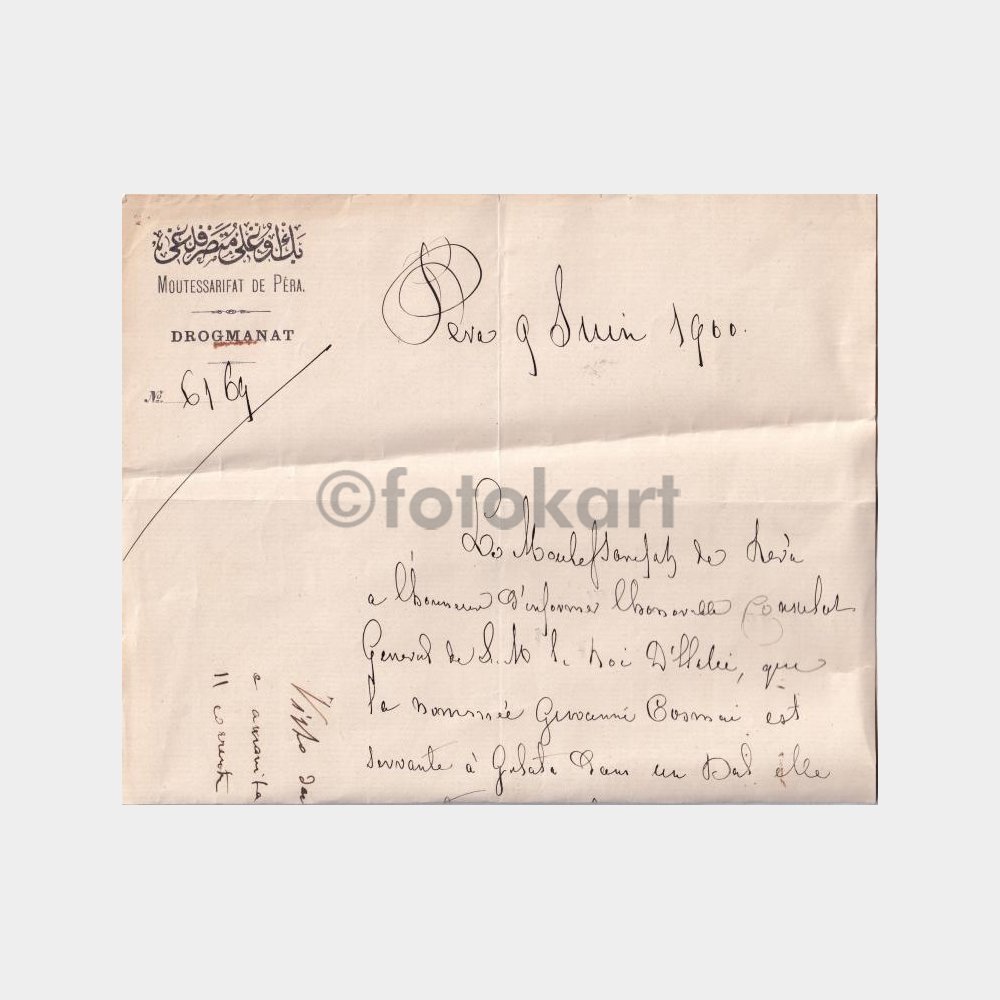 بك اوغلى متصرفلغى
MOUTESSARIFAT DE PÉRA.
DROGMANAT
№ 6169
Pera 9 Juin 1900.
©fotokart
Le Moutessarifat de Pera
a l'honneur d'informer l'honorable Consulat
General de S. M. le Roi D'Italie, que
la nommée Giovanni Cosmai est
servante à Galata dans un Bal elle
Visto
11 corrente